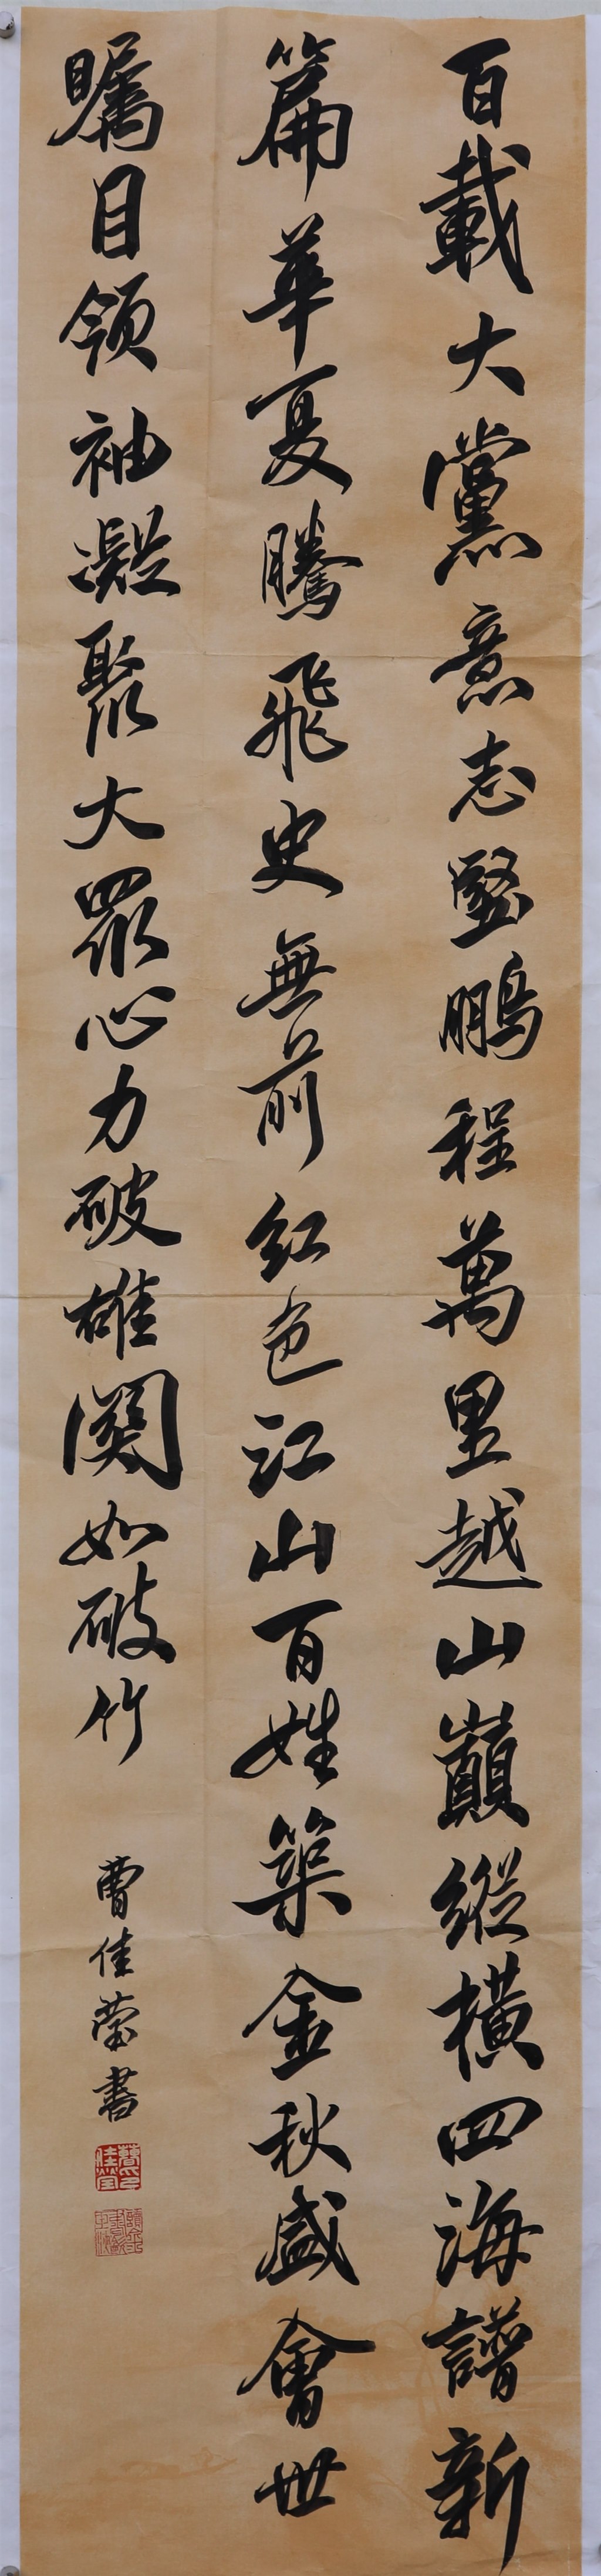 百載大黨意志堅鵬程萬里越山巔縱橫四海譜新
篇華夏騰飛史無前紅色江山百姓築金秋盛會世
矚目领袖凝聚大眾心力破雄関如破竹
曹佳莹書